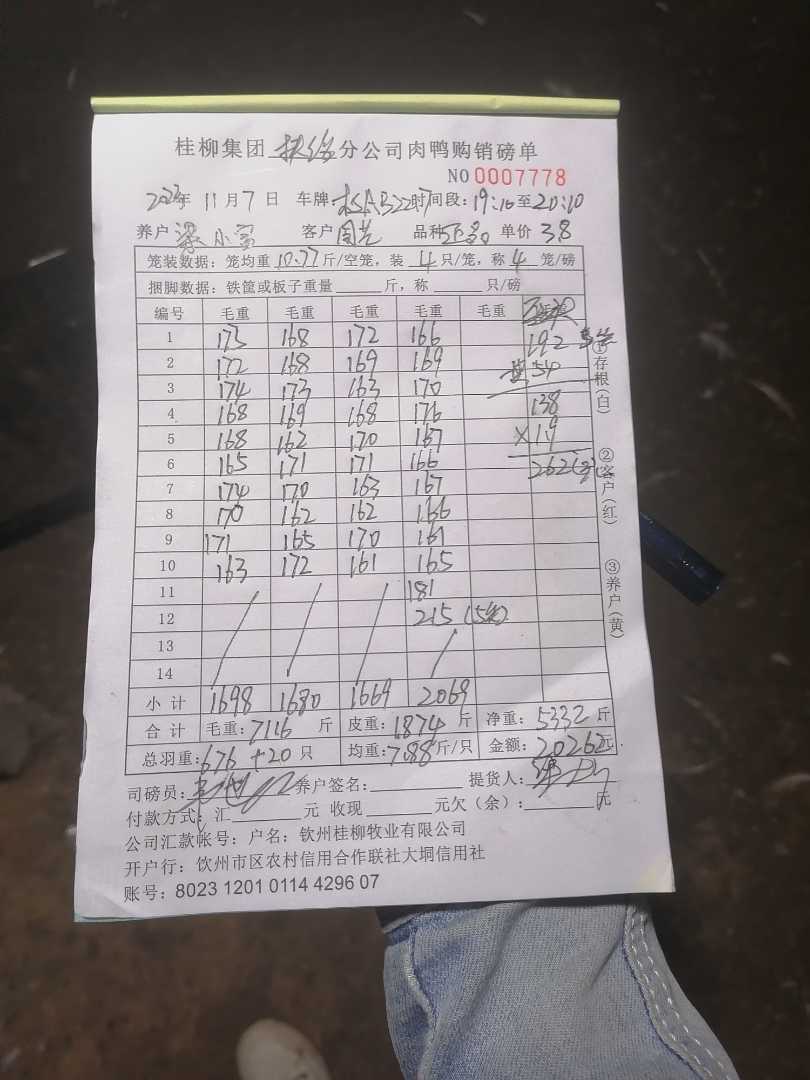 桂柳集团 扶绥 分公司肉鸭购销磅单
NO 0007778
2023年 11月7日 车牌 时间段: 19:10至20:10
养户 梁小军 客户 周芒 品种 单价 3.8
笼装数据: 笼均重 10.77 斤/空笼, 装 4 只/笼, 称 4 笼/磅
捆脚数据: 铁筐或板子重量 斤, 称 只/磅
编号 毛重 毛重 毛重 毛重 毛重
1 173 168 172 166 192
2 172 168 169 169 54
3 174 173 163 170
4 168 169 168 176 138
5 168 162 170 167 ×1.9
6 165 171 171 166 262
7 174 170 163 167
8 170 162 162 166
9 171 165 170 161
10 163 172 161 165
11 181
12 215 (5笼)
13
14
小计 1698 1680 1669 2069
合计 毛重: 7116 斤 皮重: 1874 斤 净重: 5332 斤
总羽重: 676 +20 只 均重: 7.88 斤/只 金额: 20262元
司磅员: 养户签名: 提货人:
付款方式: 汇 元 收现 元欠(余): 元
公司汇款帐号: 户名: 钦州桂柳牧业有限公司
开户行: 钦州市区农村信用合作联社大垌信用社
账号: 8023 1201 0114 4296 07
①存根(白)
②客户(红)
③养户(黄)